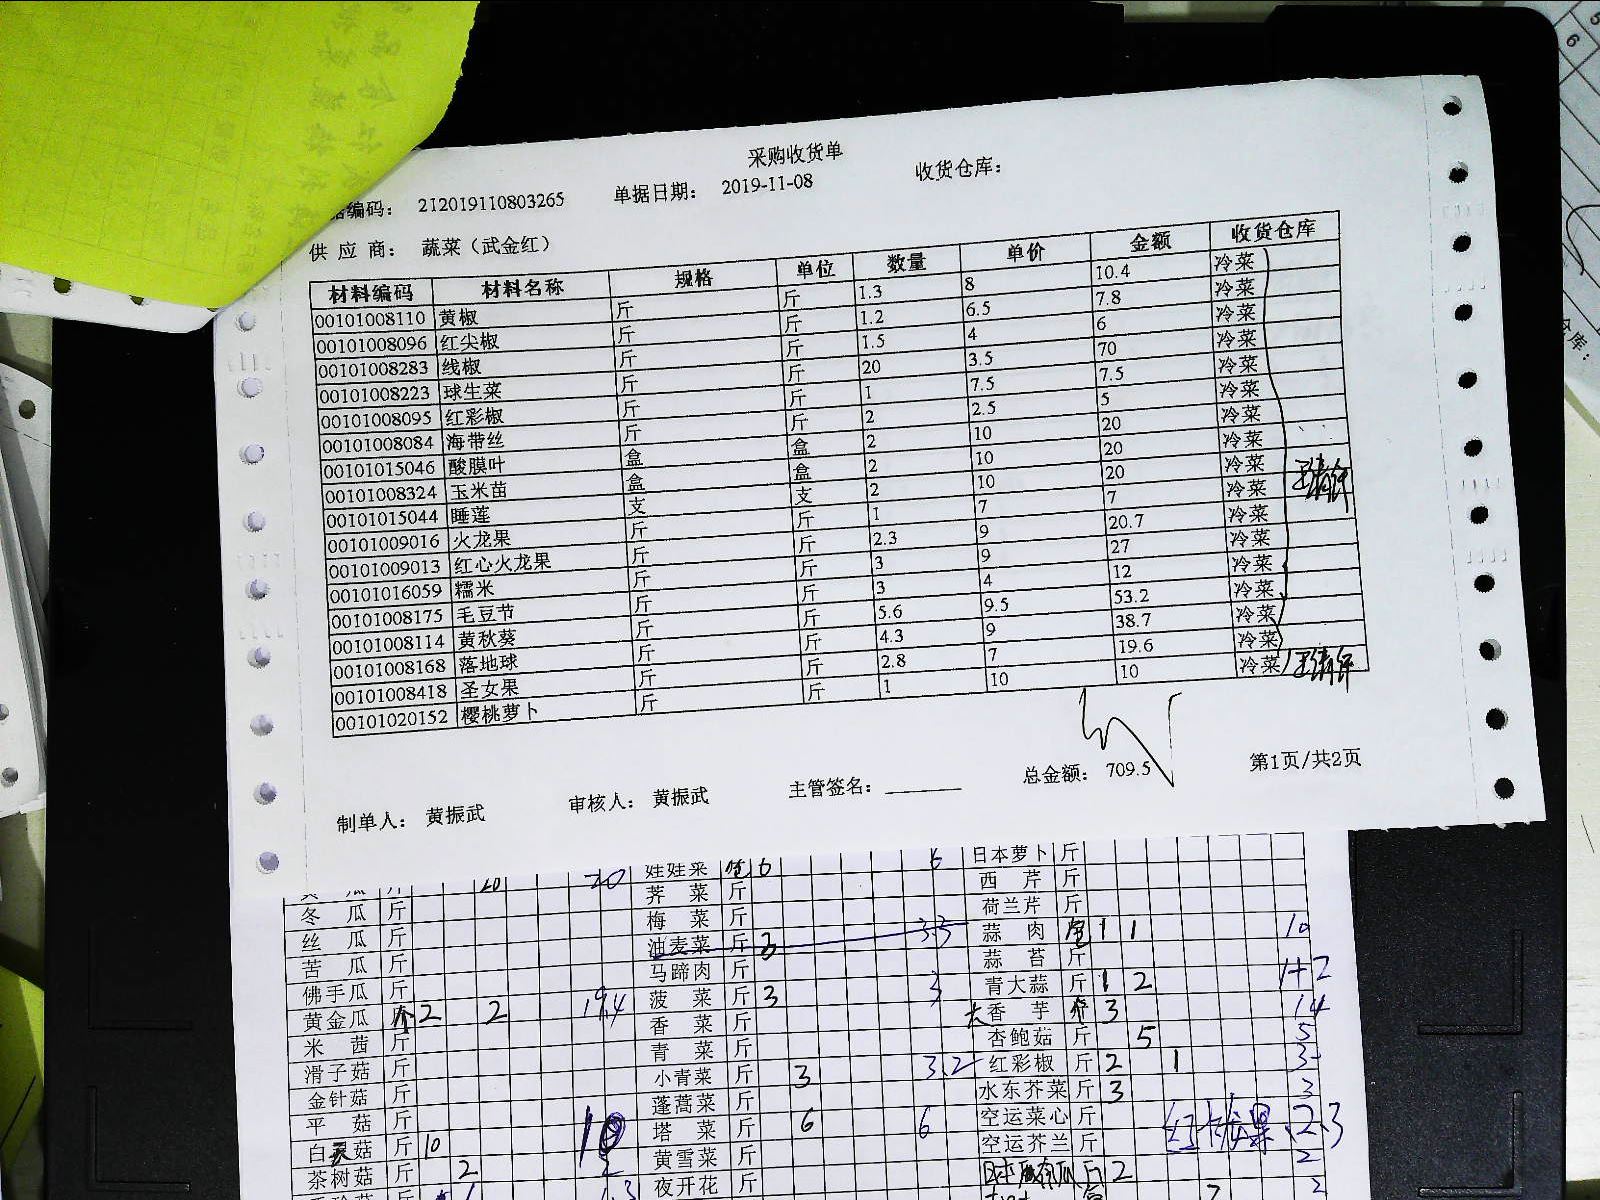 采购收货单
编码： 212019110803265 单据日期： 2019-11-08 收货仓库：
供 应 商： 蔬菜（武金红）
材料编码 材料名称 规格 单位 数量 单价 金额 收货仓库
00101008110 黄椒 斤 斤 1.3 8 10.4 冷菜
00101008096 红尖椒 斤 斤 1.2 6.5 7.8 冷菜
00101008283 线椒 斤 斤 1.5 4 6 冷菜
00101008223 球生菜 斤 斤 20 3.5 70 冷菜
00101008095 红彩椒 斤 斤 1 7.5 7.5 冷菜
00101008084 海带丝 斤 斤 2 2.5 5 冷菜
00101015046 酸膜叶 盒 盒 2 10 20 冷菜
00101008324 玉米苗 盒 盒 2 10 20 冷菜
00101015044 睡莲 支 支 2 10 20 冷菜
00101009016 火龙果 斤 斤 1 7 7 冷菜
00101009013 红心火龙果 斤 斤 2.3 9 20.7 冷菜
00101016059 糯米 斤 斤 3 9 27 冷菜
00101008175 毛豆节 斤 斤 3 4 12 冷菜
00101008114 黄秋葵 斤 斤 5.6 9.5 53.2 冷菜
00101008168 落地球 斤 斤 4.3 9 38.7 冷菜
00101008418 圣女果 斤 斤 2.8 7 19.6 冷菜
00101020152 樱桃萝卜 斤 斤 1 10 10 冷菜
制单人： 黄振武 审核人： 黄振武 主管签名： 总金额： 709.5 第1页/共2页
瓜 斤 20 20 娃娃菜 6 6 日本萝卜 斤
冬 瓜 斤 荠 菜 斤 西 芹 斤
丝 瓜 斤 梅 菜 斤 荷兰芹 斤
苦 瓜 斤 油麦菜 斤 3 3.3 蒜 肉 1 1 10
佛手瓜 斤 马蹄肉 斤 蒜 苔 斤
黄金瓜 个 2 2 19.4 菠 菜 斤 3 3 青大蒜 斤 1 2 1+2
米 茜 斤 香 菜 斤 大香 芋 3 14
滑子菇 斤 青 菜 斤 杏鲍菇 斤 5 5
金针菇 斤 小青菜 斤 3 3.2 红彩椒 斤 2 1 3
平 菇 斤 蓬蒿菜 斤 水东芥菜 斤 3 3
白灵菇 斤 10 10 塔 菜 斤 6 6 空运菜心 斤 红火龙果 2.3
茶树菇 斤 2 2 黄雪菜 斤 空运芥兰 斤
夜开花 斤 斤 2 2